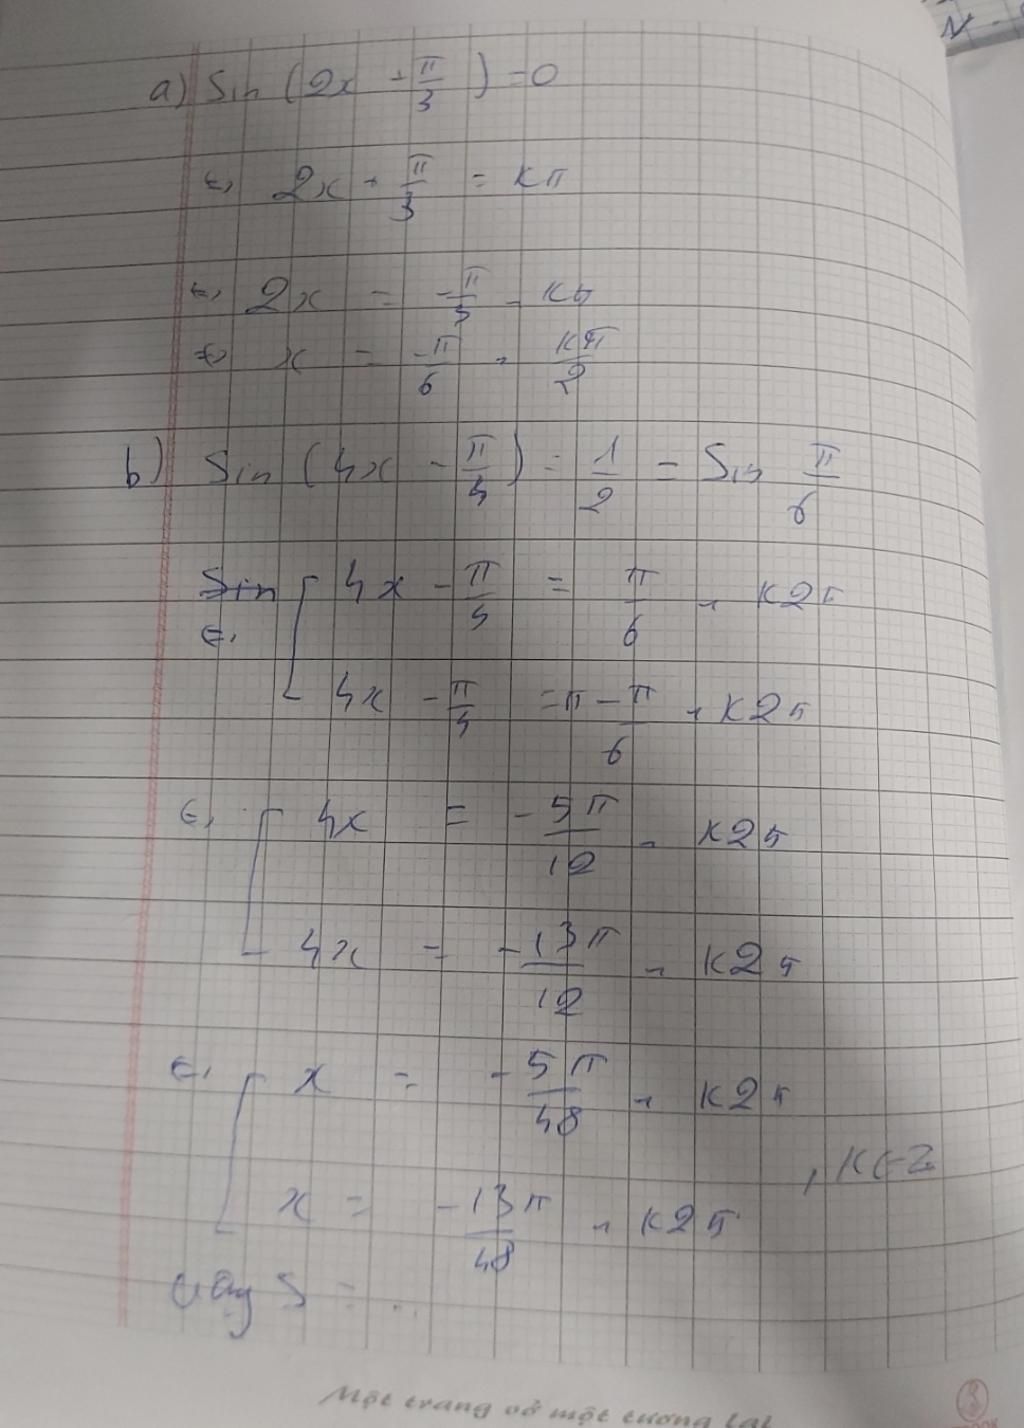 a) Sin (2x + π/3) = 0
⇔ 2x + π/3 = kπ
⇔ 2x = -π/3 + kπ
⇔ x = -π/6 + kπ/2
b) Sin (4x - π/4) = 1/2 = Sin π/6
⇔ [ 4x - π/4 = π/6 + k2π
4x - π/4 = π - π/6 + k2π
⇔ [ 4x = -5π/12 + k2π
4x = -13π/12 + k2π
⇔ [ x = -5π/48 + k2π
, k∈Z
x = -13π/48 + k2π
Vậy S = ...
Một trang vở một tương lai